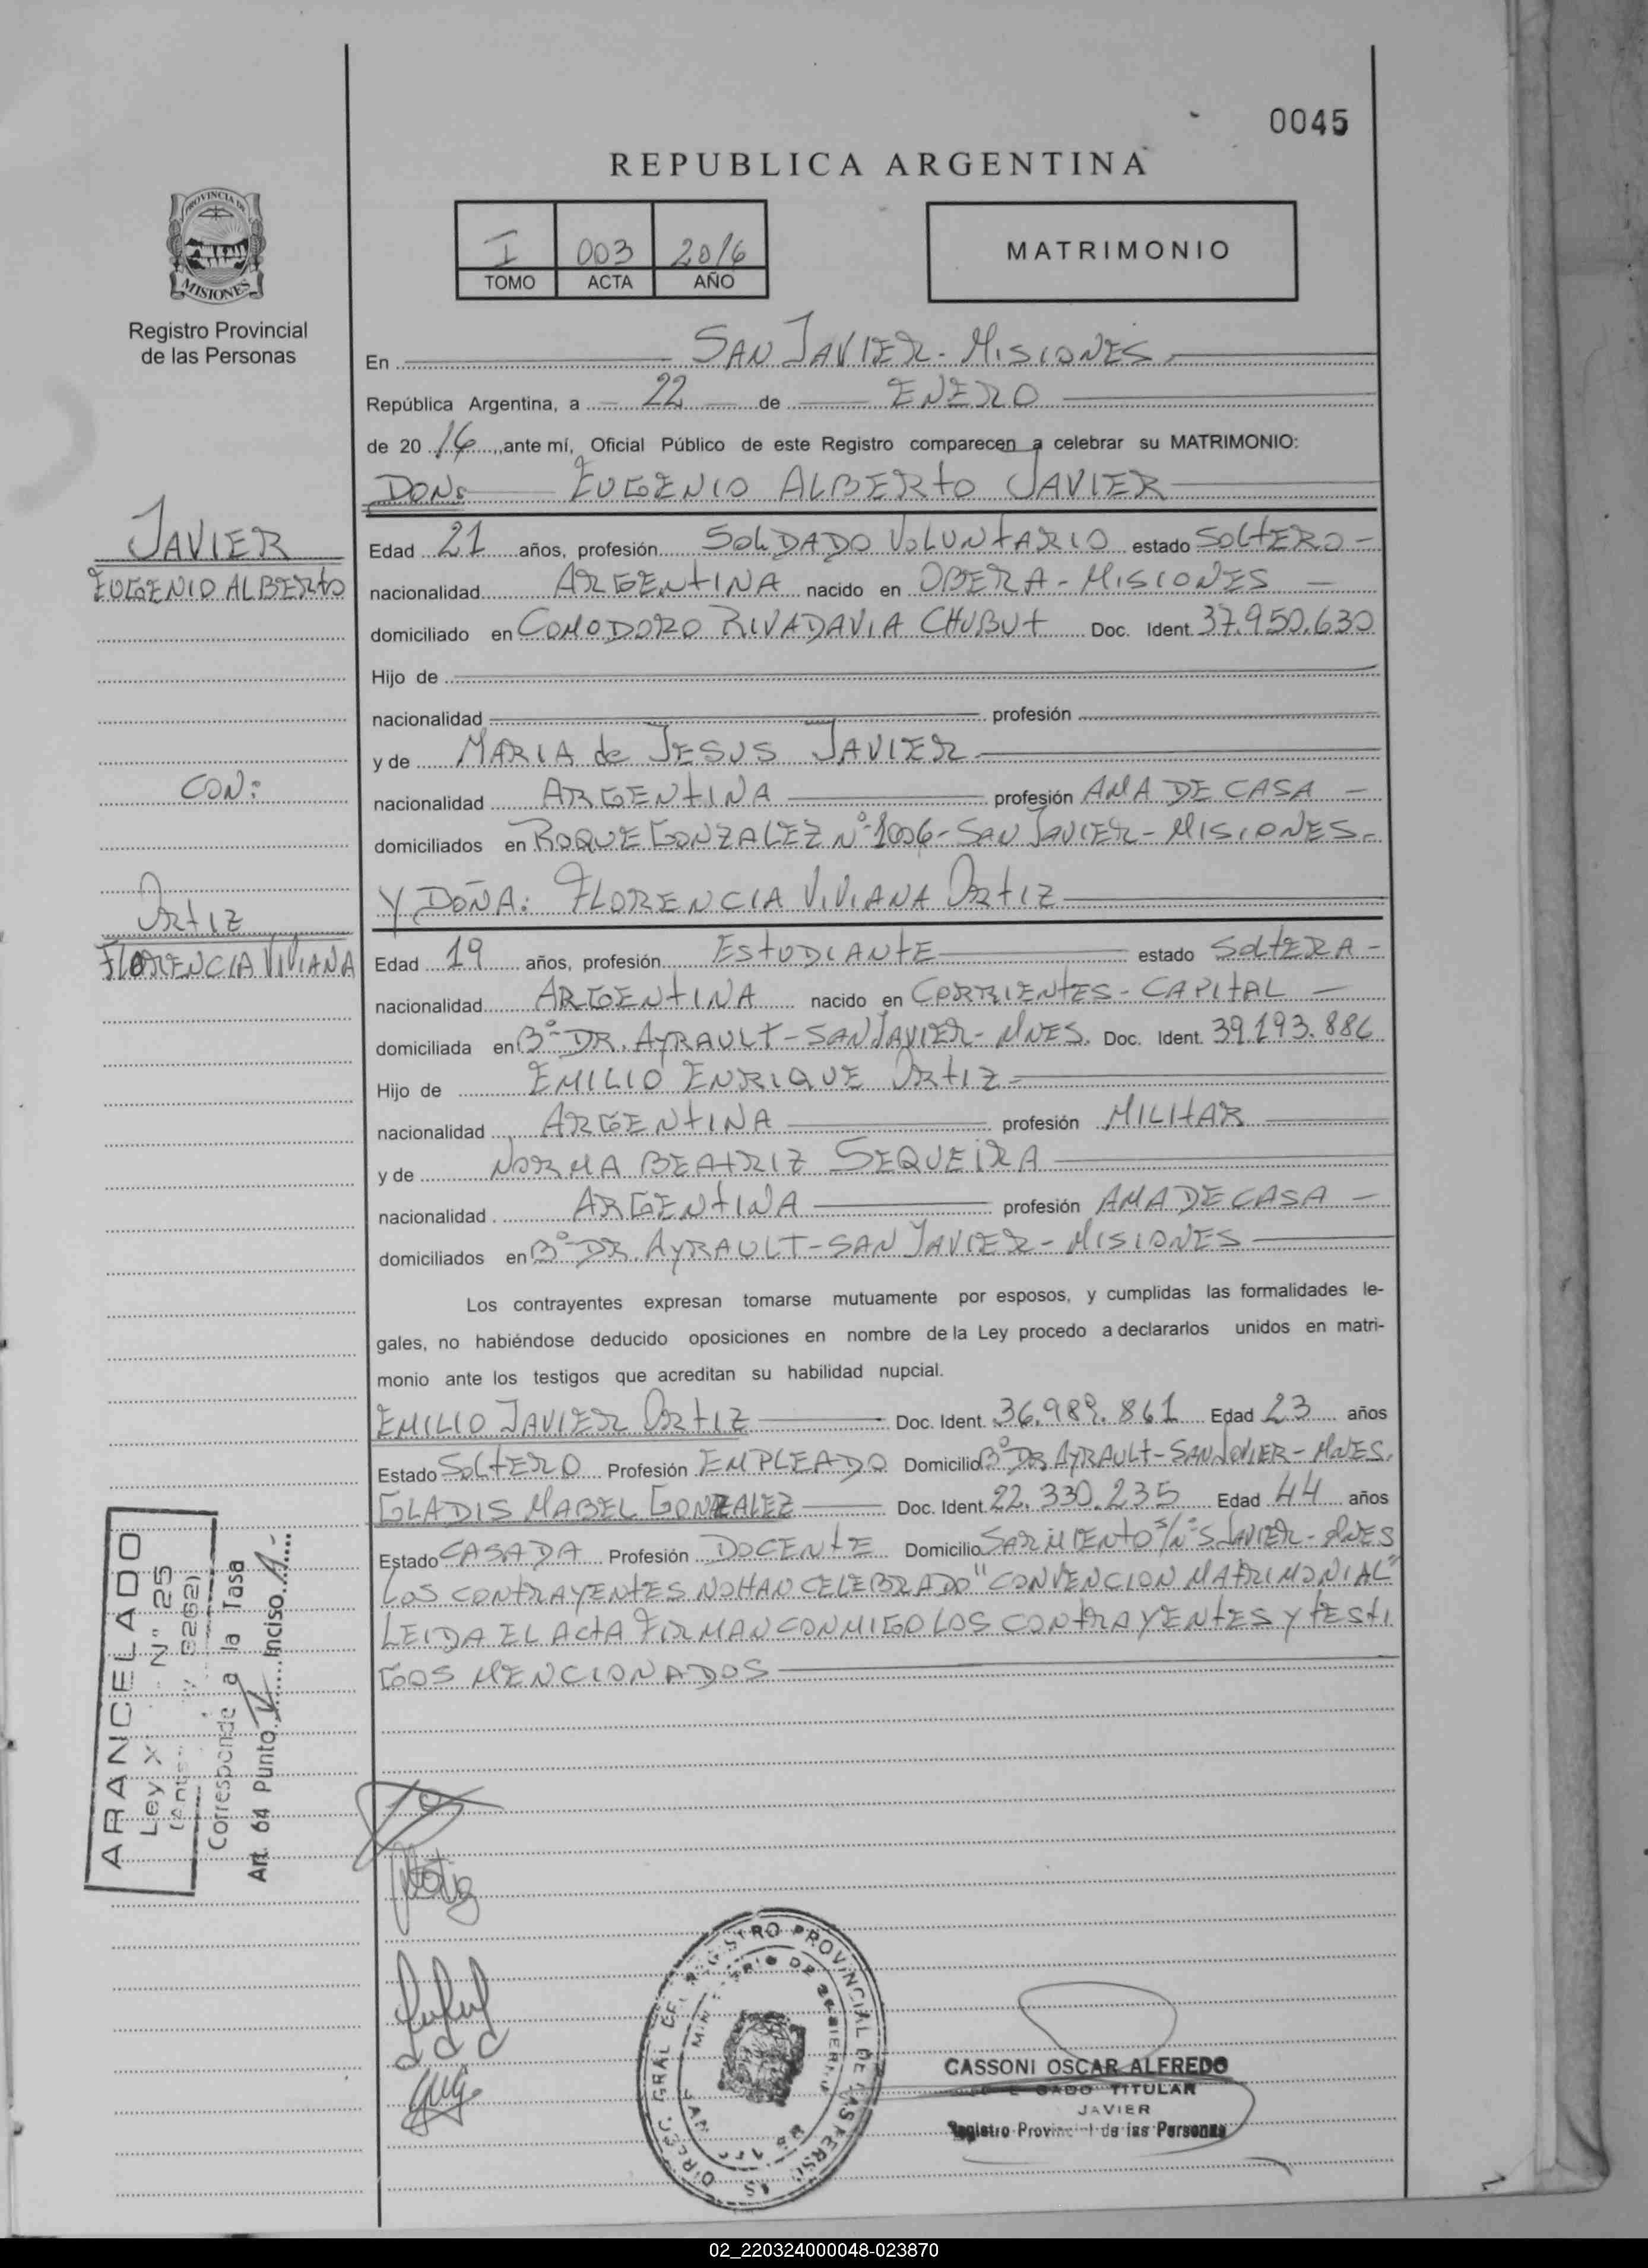 0045
REPUBLICA ARGENTINA
PROVINCIA DE
MISIONES
Registro Provincial
de las Personas
I 003 2016
TOMO ACTA AÑO
MATRIMONIO
En SAN JAVIER - MISIONES
República Argentina, a 22 de ENERO
de 20 16, ante mí, Oficial Público de este Registro comparecen a celebrar su MATRIMONIO:
DON: EUGENIO ALBERTO JAVIER
JAVIER
EUGENIO ALBERTO
Edad 21 años, profesión SOLDADO VOLUNTARIO estado SOLTERO -
nacionalidad ARGENTINA nacido en OBERA - MISIONES -
domiciliado en COMODORO RIVADAVIA CHUBUT Doc. Ident. 37.950.630
Hijo de
nacionalidad profesión
y de MARIA de JESUS JAVIER
CON:
nacionalidad ARGENTINA profesión AMA DE CASA -
domiciliados en ROQUE GONZALEZ Nº 1006 - SAN JAVIER - MISIONES.-
Y DOÑA: FLORENCIA VIVIANA ORTIZ
ORTIZ
FLORENCIA VIVIANA
Edad 19 años, profesión ESTUDIANTE estado SOLTERA -
nacionalidad ARGENTINA nacido en CORRIENTES - CAPITAL -
domiciliada en Bº DR. AYRAULT - SAN JAVIER - MNES. Doc. Ident. 39.193.886
Hijo de EMILIO ENRIQUE ORTIZ
nacionalidad ARGENTINA profesión MILITAR
y de NORMA BEATRIZ SEQUEIRA
nacionalidad ARGENTINA profesión AMA DE CASA -
domiciliados en Bº DR. AYRAULT - SAN JAVIER - MISIONES
Los contrayentes expresan tomarse mutuamente por esposos, y cumplidas las formalidades le-
gales, no habiéndose deducido oposiciones en nombre de la Ley procedo a declararlos unidos en matri-
monio ante los testigos que acreditan su habilidad nupcial.
EMILIO JAVIER ORTIZ Doc. Ident. 36.989.861 Edad 23 años
Estado SOLTERO Profesión EMPLEADO Domicilio Bº DR. AYRAULT - SAN JAVIER - MNES.
GLADIS MABEL GONZALEZ Doc. Ident. 22.330.235 Edad 44 años
Estado CASADA Profesión DOCENTE Domicilio SARMIENTO S/Nº S. JAVIER - MNES
LOS CONTRAYENTES NO HAN CELEBRADO "CONVENCION MATRIMONIAL"
LEIDA EL ACTA FIRMAN CONMIGO LOS CONTRAYENTES Y TESTI
GOS MENCIONADOS
ARANCELADO
Ley X Nº 25
Corresponde a la Tasa
Art. 64 Punto IV Inciso A-
DIREC. GRAL DEL REGISTRO PROVINCIAL DE LAS PERSONAS
CASSONI OSCAR ALFREDO
TITULAR
JAVIER
Registro Provincial de las Personas
02_220324000048-023870